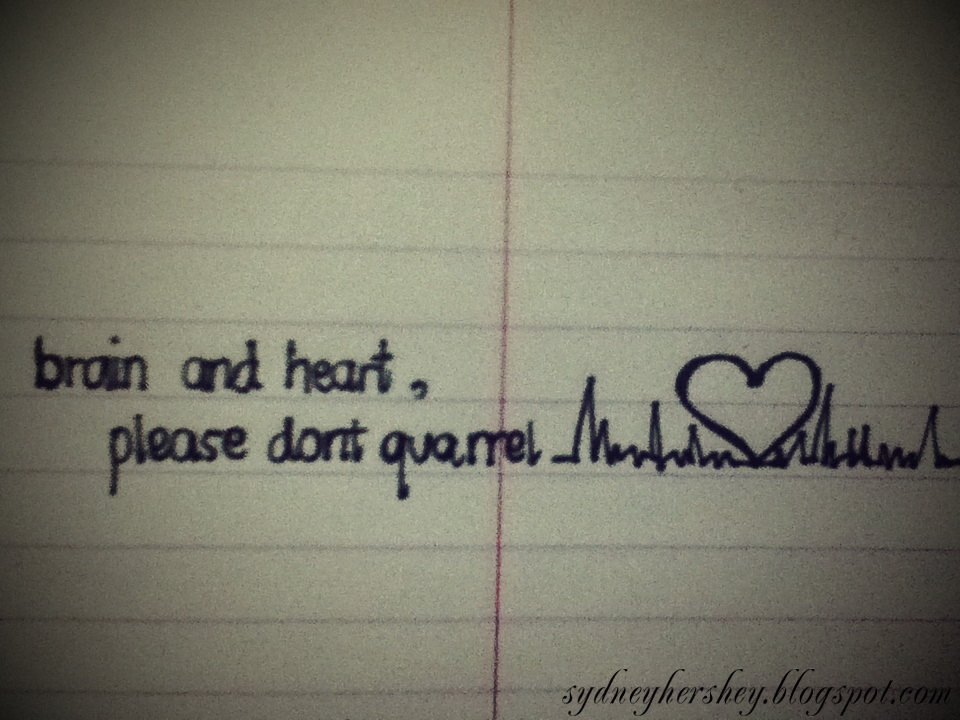 brain and heart,
please dont quarrel
sydneyhershey.blogspot.com